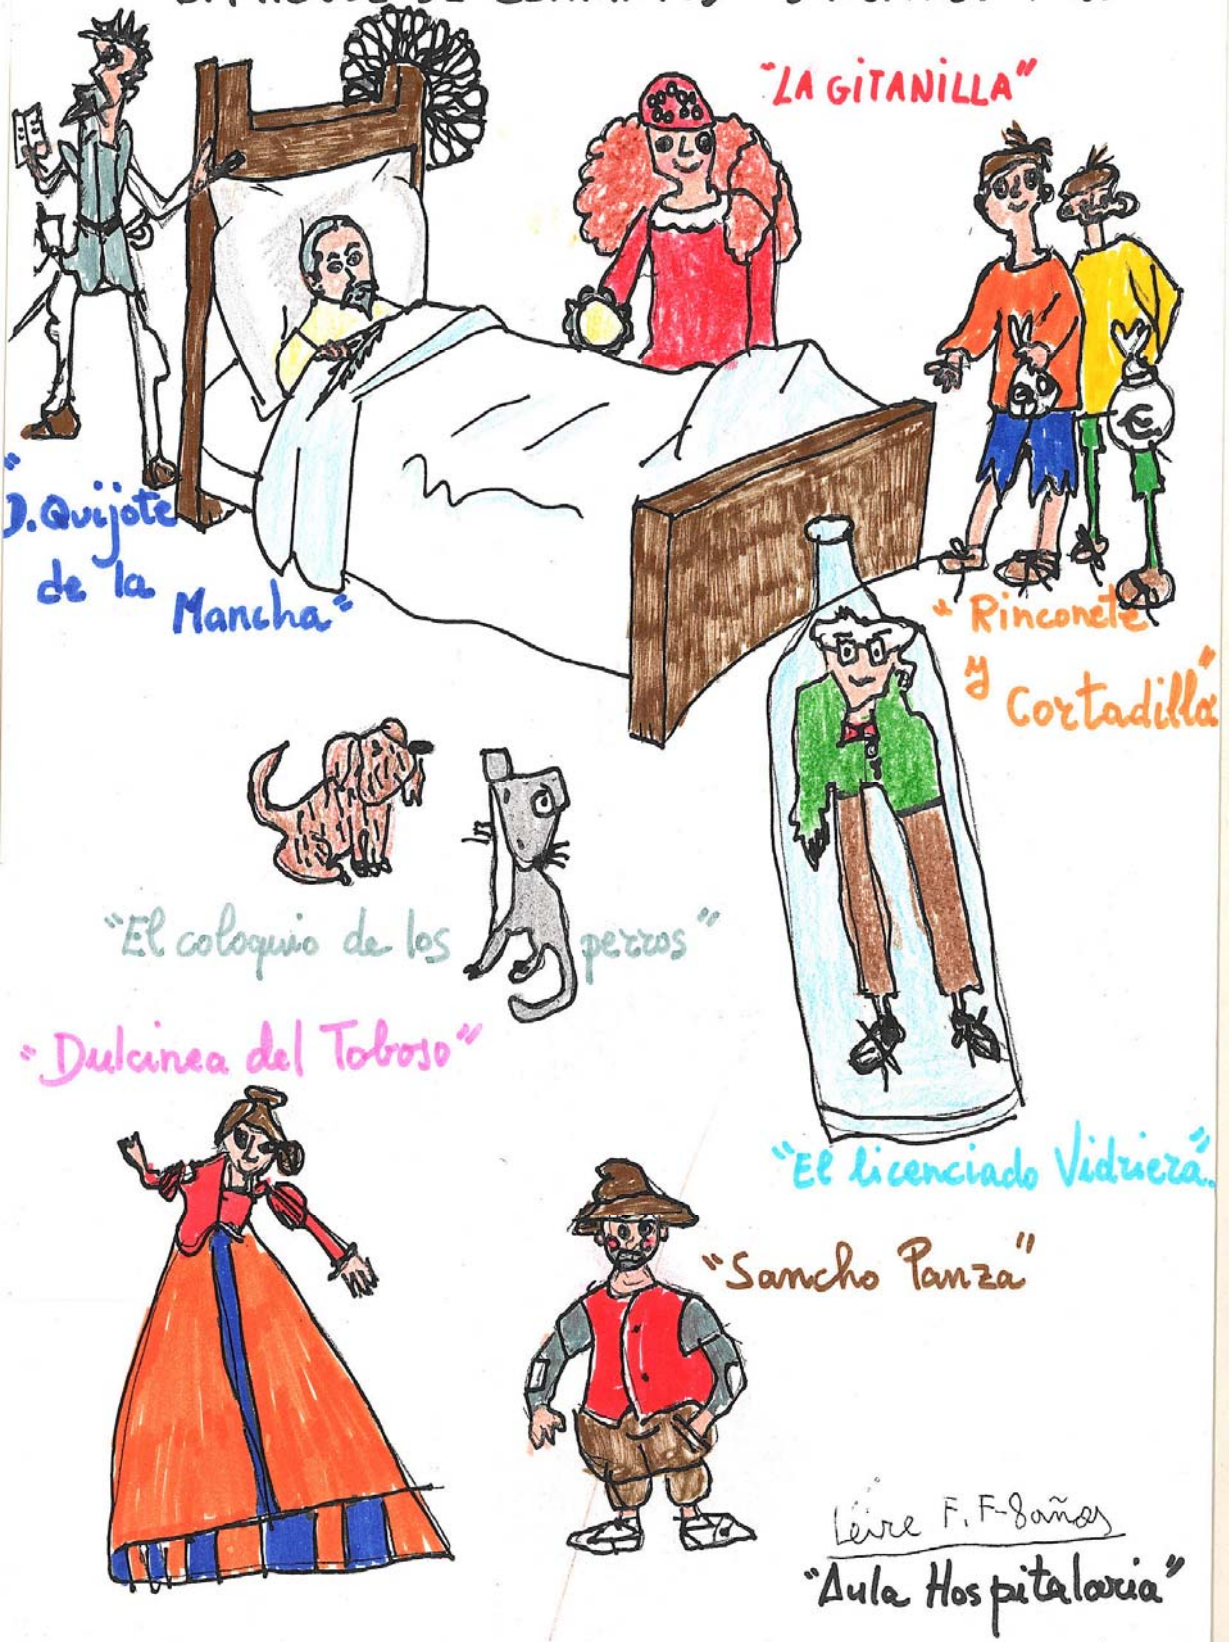 MIGUEL DE CERVANTES
"LA GITANILLA"
€
"D. Quijote
de la
Mancha"
"Rinconete
y
Cortadilla"
"El coloquio de los perros"
"Dulcinea del Toboso"
"El licenciado Vidriera".
"Sancho Panza"
Leire F. F-8años
"Aula Hospitalaria"